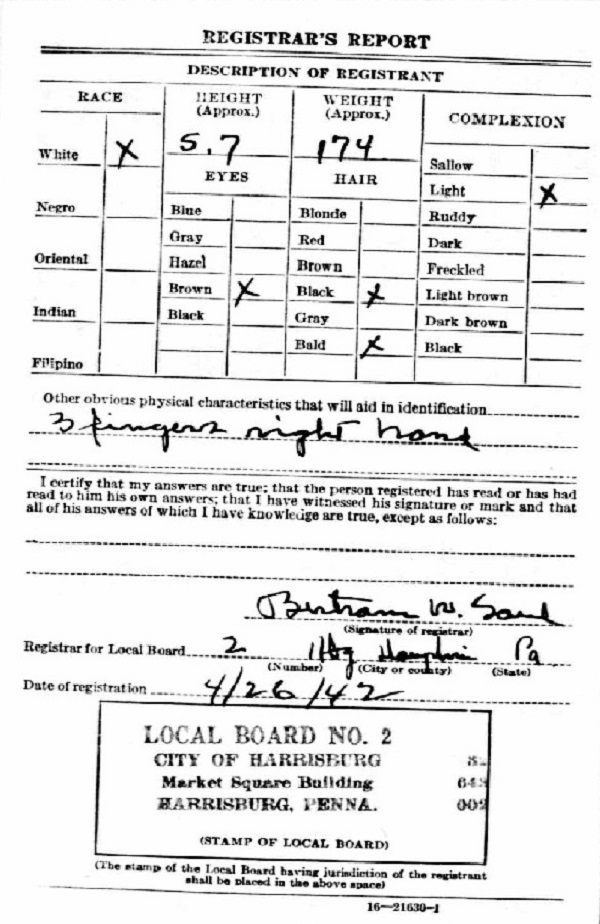 REGISTRAR'S REPORT
DESCRIPTION OF REGISTRANT
RACE
HEIGHT
(Approx.)
WEIGHT
(Approx.)
COMPLEXION
White X
5.7
174
Sallow
EYES
HAIR
Light X
Negro
Blue
Blonde
Ruddy
Gray
Red
Dark
Oriental
Hazel
Brown
Freckled
Brown X
Black X
Light brown
Indian
Black
Gray
Dark brown
Bald X
Black
Filipino
Other obvious physical characteristics that will aid in identification
3 fingers right hand
I certify that my answers are true; that the person registered has read or has had
read to him his own answers; that I have witnessed his signature or mark and that
all of his answers of which I have knowledge are true, except as follows:
Bertram W. Saul
(Signature of registrar)
Registrar for Local Board 2 Hbg Dauphin Pa
(Number) (City or county) (State)
Date of registration 4/26/42
LOCAL BOARD NO. 2
CITY OF HARRISBURG
Market Square Building
HARRISBURG, PENNA.
002
(STAMP OF LOCAL BOARD)
(The stamp of the Local Board having jurisdiction of the registrant
shall be placed in the above space)
16—21630-1